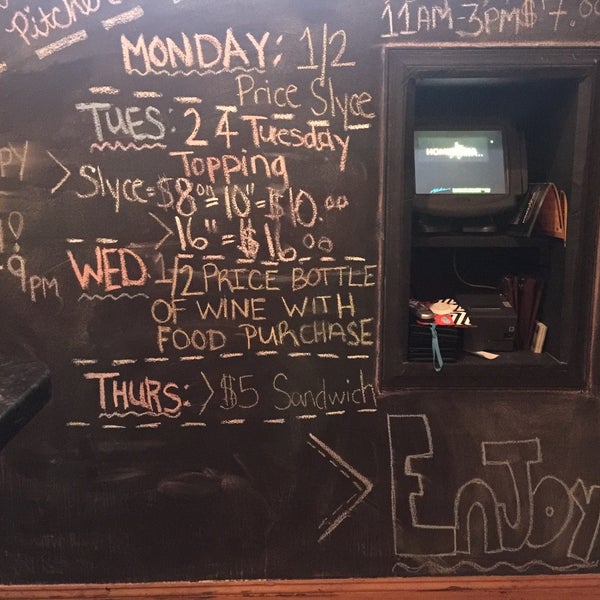 Pitche
11AM-3PM $7.00
MONDAY: 1/2
Price Slyce
TUES: 2 4 Tuesday
Topping
PY > Slyce = $8.00 = 10" = $10.00
> 16" = $16.00
-9PM
WED. 1/2 PRICE BOTTLE
OF WINE WITH
FOOD PURCHASE
THURS: > $5 Sandwich
> ENJOY